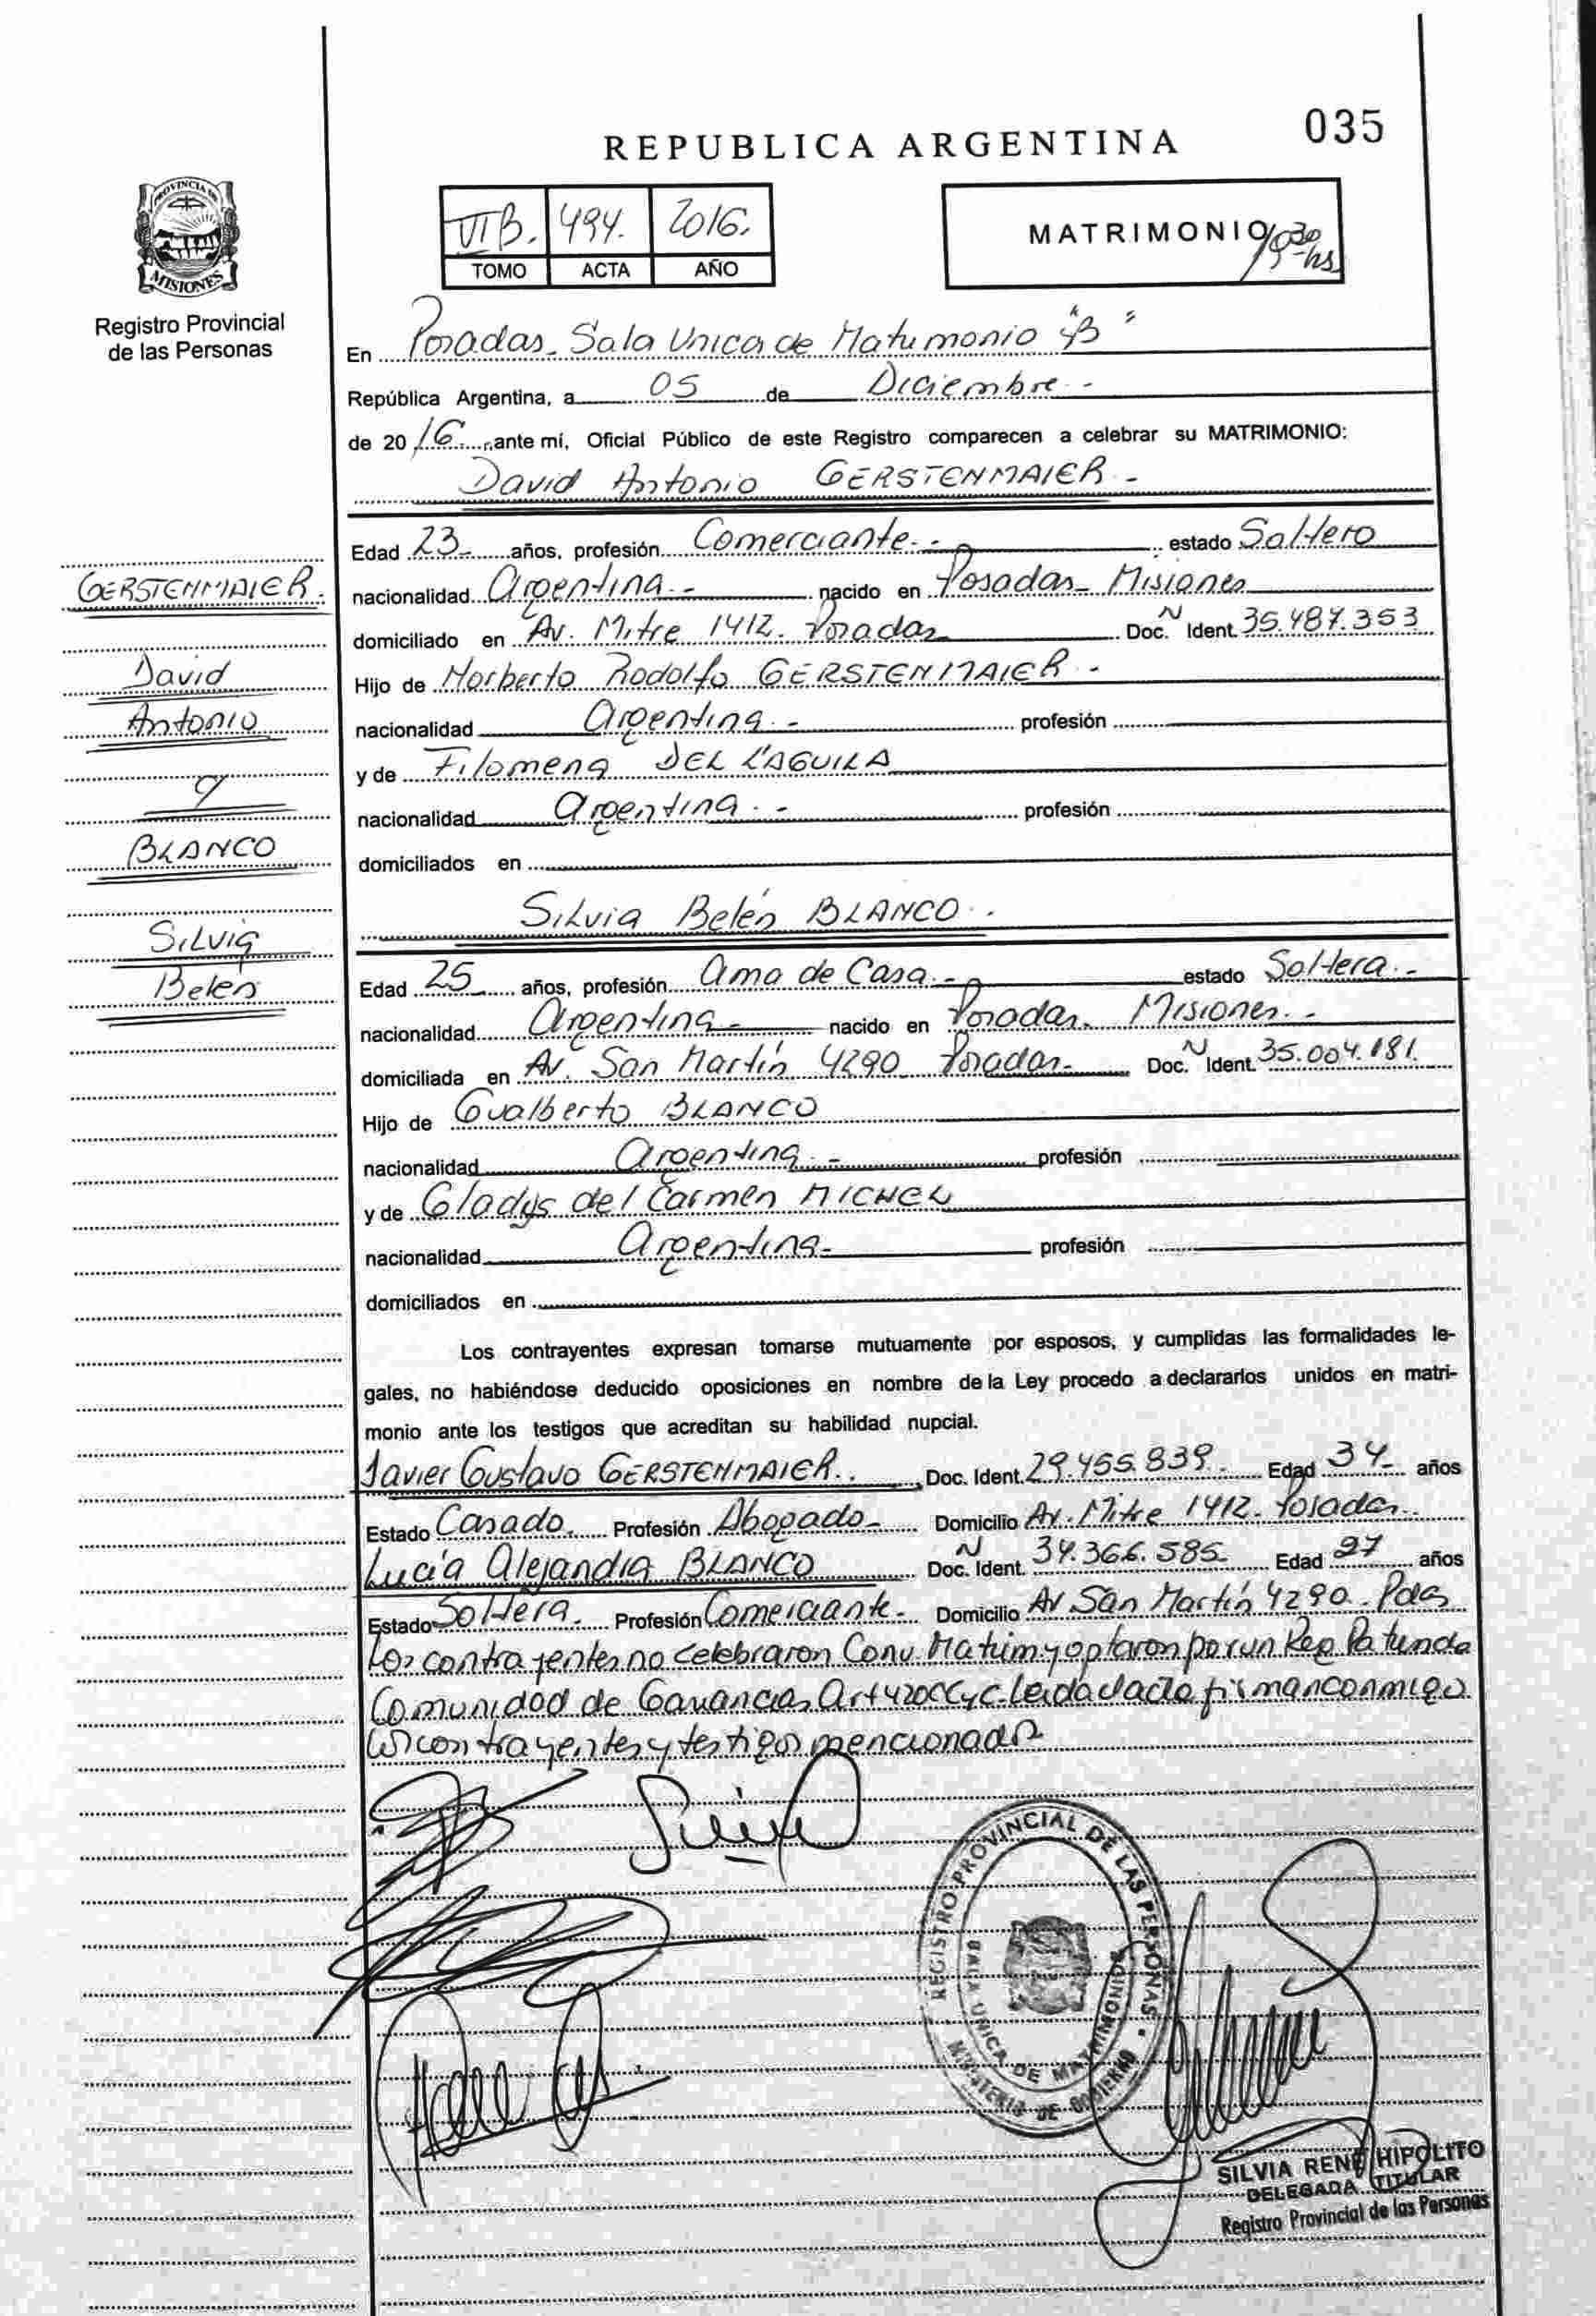 035
REPUBLICA ARGENTINA
PROVINCIA DE
MISIONES
Registro Provincial
de las Personas
VI B. 494. 2016.
TOMO ACTA AÑO
MATRIMONIO
En Posadas. Sala Unica de Matrimonio "B"
República Argentina, a 05 de Diciembre.-
de 2016 ante mí, Oficial Público de este Registro comparecen a celebrar su MATRIMONIO:
David Antonio GERSTENMAIER.-
Edad 23 años, profesión Comerciante.- estado Soltero
nacionalidad Argentina.- nacido en Posadas- Misiones
domiciliado en Av. Mitre 1412. Posadas Doc. N Ident. 35.487.353
Hijo de Norberto Rodolfo GERSTENMAIER.-
nacionalidad Argentina.- profesión
y de Filomena DEL L'AGUILA
nacionalidad Argentina.- profesión
domiciliados en
Silvia Belén BLANCO.
Edad 25 años, profesión Ama de Casa.- estado Soltera.-
nacionalidad Argentina- nacido en Posadas. Misiones.-
domiciliada en Av. San Martín 4290 Posadas- Doc. N Ident. 35.004.181.
Hijo de Gualberto BLANCO
nacionalidad Argentina.- profesión
y de Gladys del Carmen MICHEL
nacionalidad Argentina- profesión
domiciliados en
GERSTENMAIER.
David
Antonio
y
BLANCO
Silvia
Belén
Los contrayentes expresan tomarse mutuamente por esposos, y cumplidas las formalidades le-
gales, no habiéndose deducido oposiciones en nombre de la Ley procedo a declararlos unidos en matri-
monio ante los testigos que acreditan su habilidad nupcial.
Javier Gustavo GERSTENMAIER. Doc. Ident. 29.455.839. Edad 34 años
Estado Casado. Profesión Abogado- Domicilio Av. Mitre 1412. Posadas.
Lucía Alejandra BLANCO Doc. N Ident. 34.366.585. Edad 27 años
Estado Soltera. Profesión Comerciante- Domicilio Av San Martín 4290. Pdas
Los contrayentes no celebraron Conv. Matrim y optaron por un Reg Patun de
Comunidad de Ganancias Art 420 CCyC. Leida el acta firman conmigo
los contrayentes y testigos mencionados
REGISTRO PROVINCIAL DE LAS PERSONAS
UNICA DE MATRIMONIOS
MINISTERIO DE GOBIERNO
SILVIA RENE HIPOLITO
DELEGADA TITULAR
Registro Provincial de las Personas